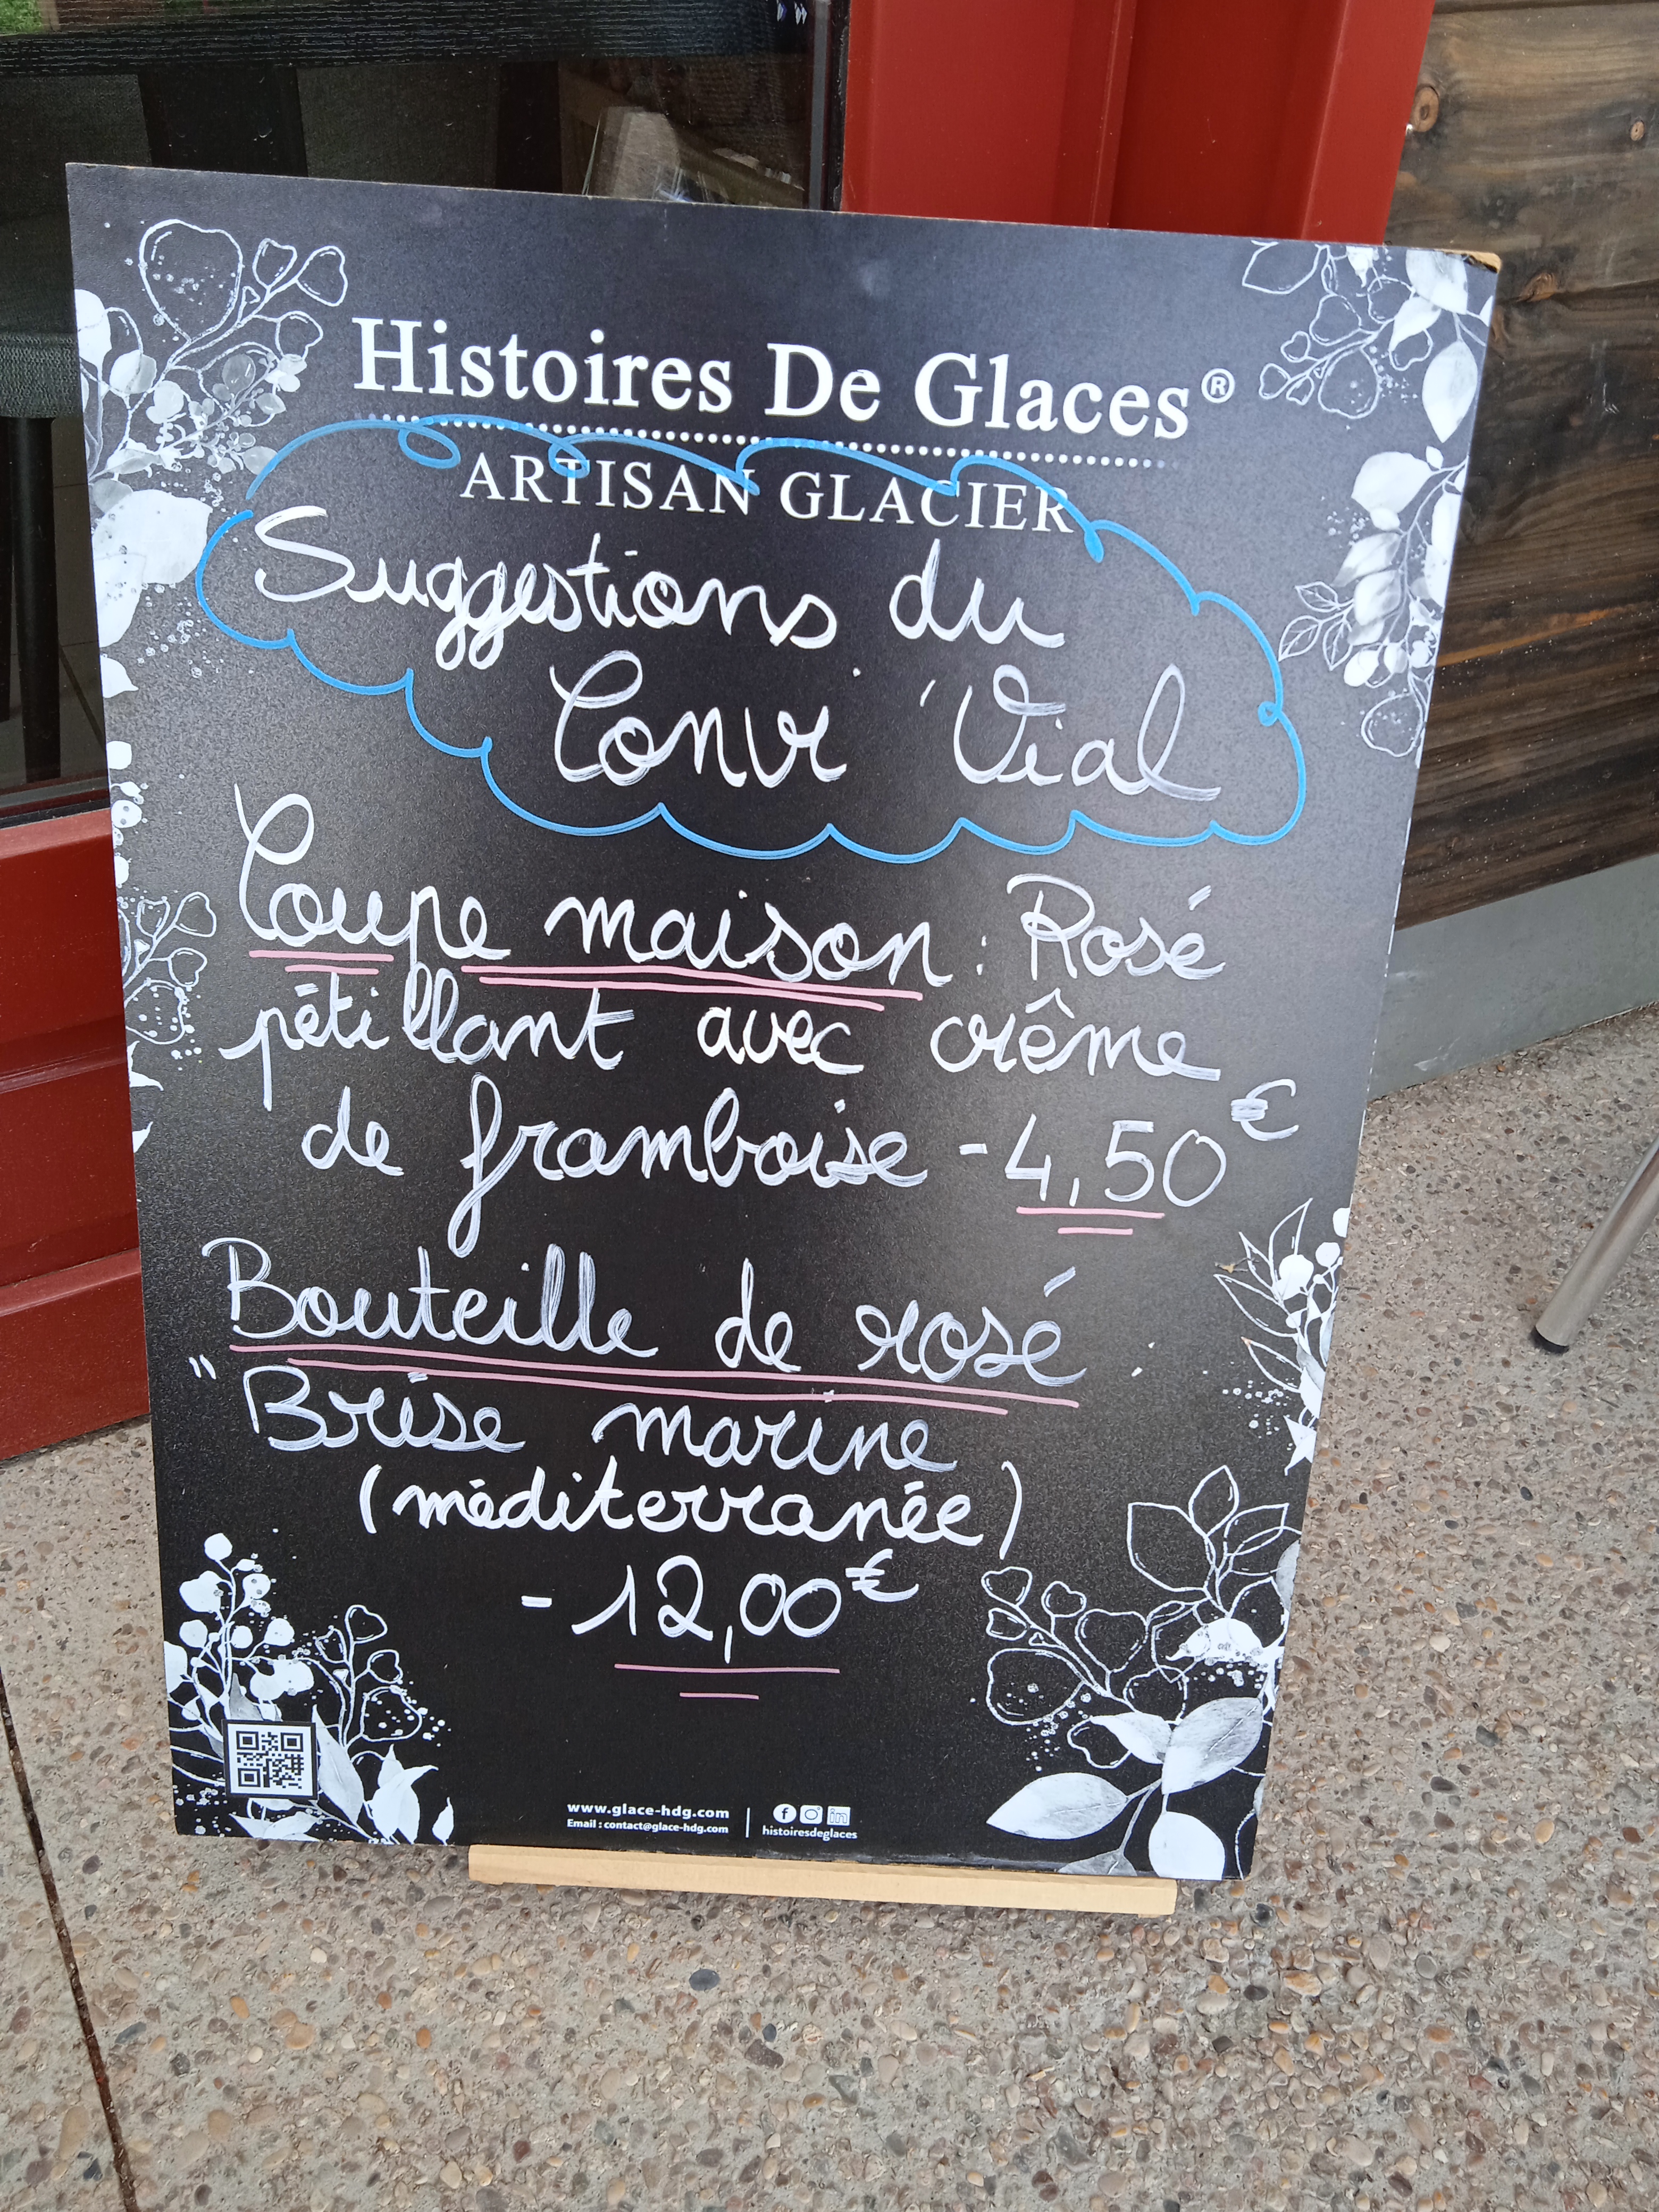 Histoires De Glaces®
ARTISAN GLACIER
Suggestions du
Convi 'Vial
Coupe maison : Rosé
pétillant avec crême
de framboise - 4,50€
Bouteille de rosé
" Brise marine
(méditerranée)
- 12,00€
www.glace-hdg.com
Email : contact@glace-hdg.com
histoiresdeglaces